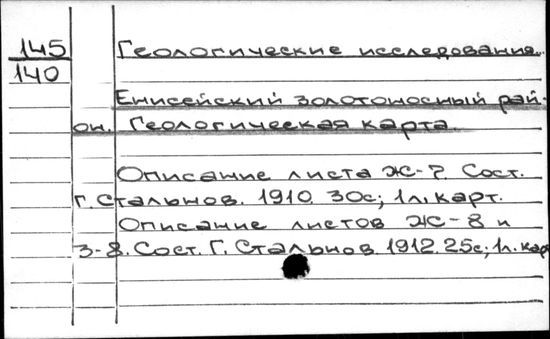 145 Геологические исследования.
140
Енисейский золотоносный рай-
он. Геологическая карта
Описание листа Ж-7. Сост.
Г. Стальнов. 1910. 30с; 1л. карт.
Описание листов Ж-8 и
З-8. Сост. Г. Стальнов. 1912. 25с; 1л. кар